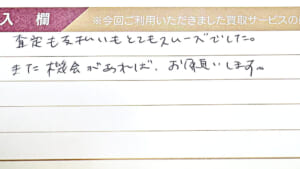 入 欄
※今回ご利用いただきました買取サービスの
査定も支払いもとてもスムーズでした。
また機会があれば、お願いします。